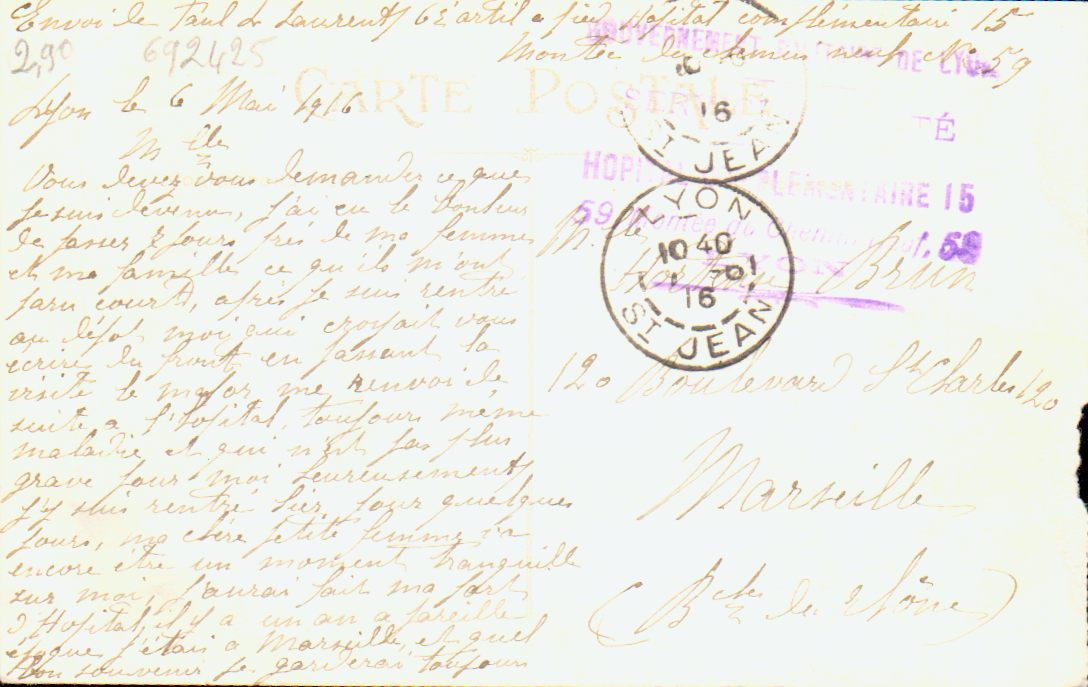 Envoi de Paul Laurent 6e artil a pied Hopital complémentaire 15
Montée du chemin neuf No 59
2,90 692425
CARTE POSTALE
Lyon le 6 Mai 1916
Mlle
Vous devez vous demander ce que
je suis devenu, j'ai eu le bonheur
de passer 7 jours près de ma femme
et ma famille ce qu'ils m'ont
paru courts, après je suis rentré
au dépot moi qui croyait vous
écrire du front en passant la
visite le major me renvoi de
suite a l'hopital, toujours même
maladie et qui n'est pas plus
grave pour moi heureusement
j'y suis rentré hier pour quelques
jours, ma chère petite femme va
encore être un moment tranquille
sur moi, j'aurai fait ma part
d'Hopital, il y a un an a pareille
époque j'étais a Marseille, et quel
bon souvenir je garderai toujours
GOUVERNEMENT MILITAIRE DE LYON
HOPITAL COMPLEMENTAIRE 15
59, Montée du Chemin Neuf, 59
LYON
16
ST JEAN
LYON
10 40
16
ST JEAN
Mlle
Brun
120 Boulevard St Charles 120
Marseille
(Bches du Rhône)